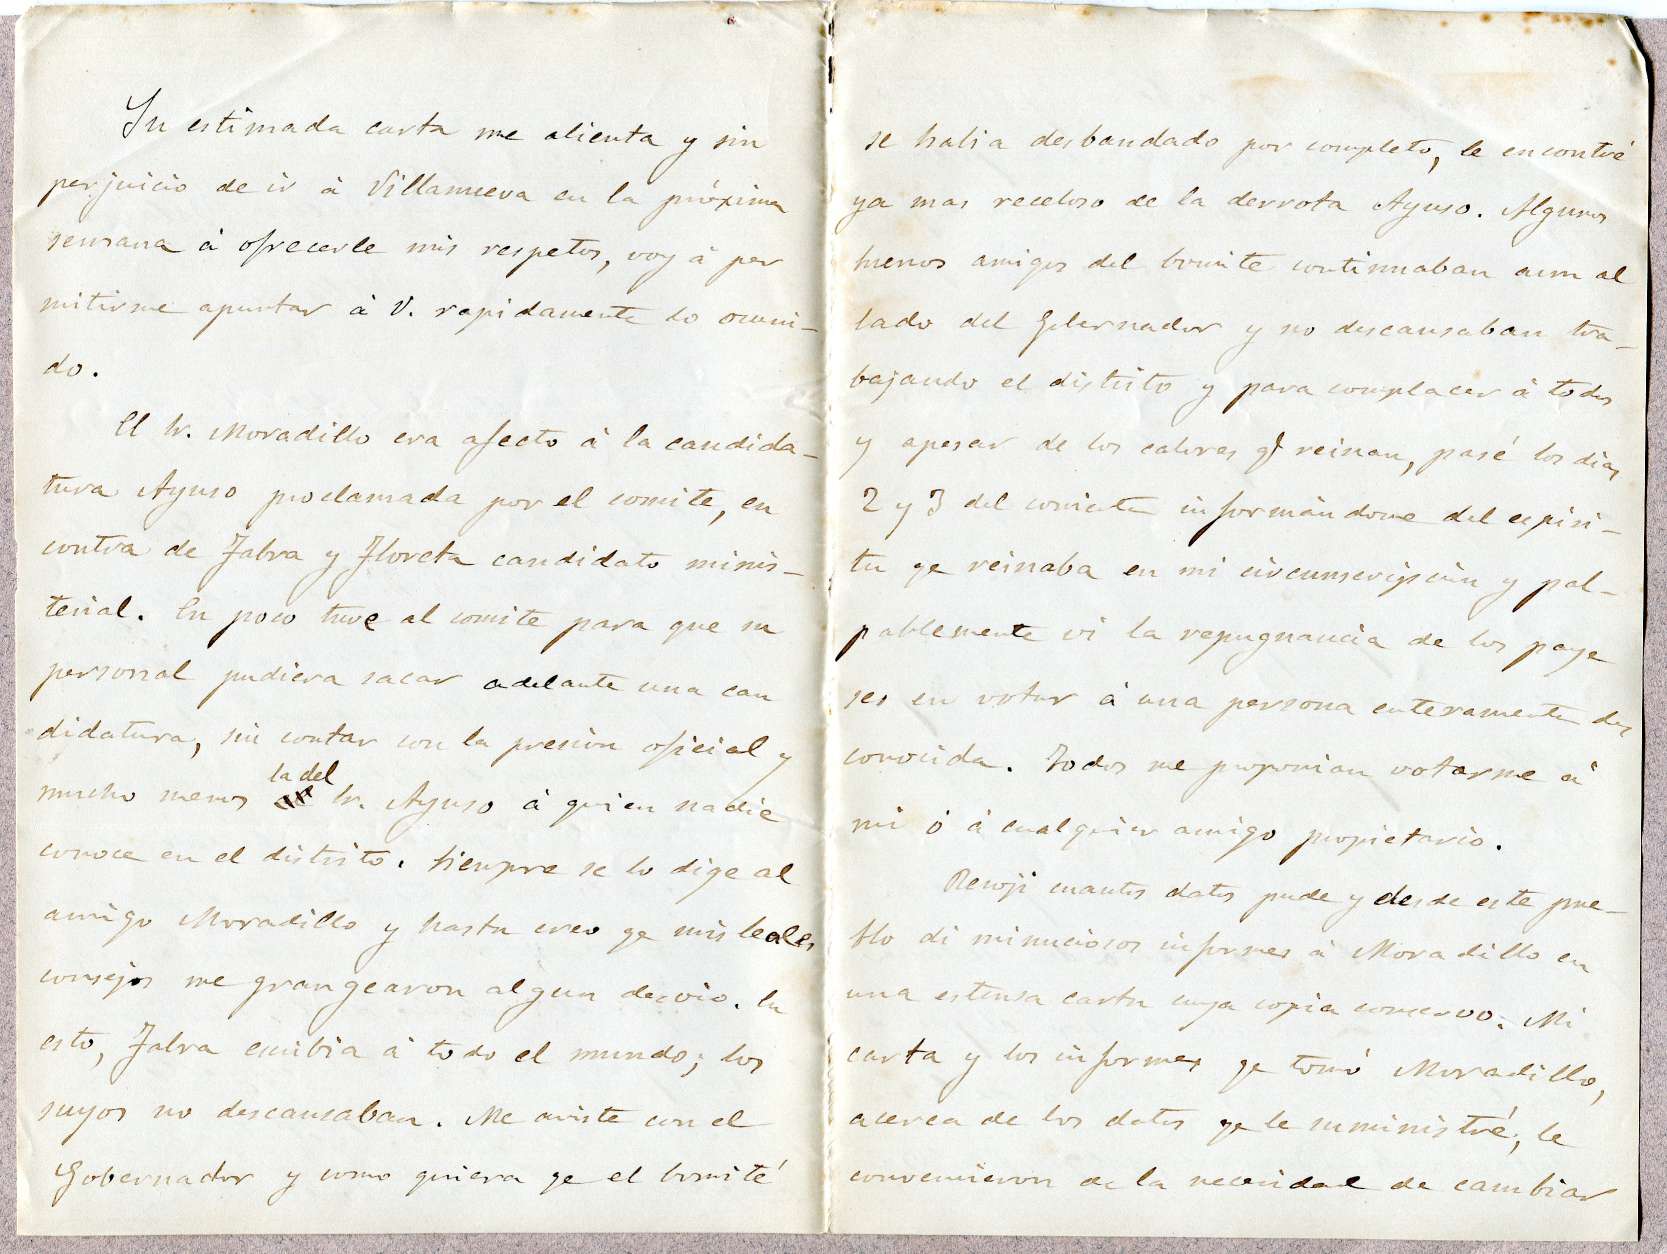 Su estimada carta me alienta y sin
perjuicio de ir á Villanueva en la próxima
semana á ofrecerle mis respetos, voy á per
mitirme apuntar á V. rapidamente lo ocurri-
do.
El Sr. Moradillo era afecto á la candida-
tura Ayuso proclamada por el comite, en
contra de Fabra y Floreta candidato minis-
terial. En poco tuve al comite para que su
personal pudiera sacar adelante una can
didatura, sin contar con la presion oficial y
mucho menos la del Sr. Ayuso á quien nadie
conoce en el distrito. Siempre se lo dige al
amigo Moradillo y hasta creo qe mis leales
consejos me grangearon algun desvio. En
esto, Fabra escribia á todo el mundo; los
suyos no descansaban. Me aviste con el
Gobernador y como quiera qe el Comité
se habia desbandado por completo, le encontré
ya mas receloso de la derrota Ayuso. Algunos
buenos amigos del Comite continuaban aun al
lado del Gobernador y no descansaban tra-
bajando el distrito y para complacer á todos
y apesar de los calores q reinan, pasé los dias
2 y 3 del corriente informándome del espiri-
tu qe reinaba en mi circunscripcion y pal-
pablemente vi la repugnancia de los paye
ses en votar á una persona enteramente des
conocida. Todos me proponian votarme á
mi ó á cualquier amigo propietario.
Recoji cuantos datos pude y desde este pue-
blo di minuciosos informes á Moradillo en
una estensa carta cuya copia conservo. Mi
carta y los informes qe tomó Moradillo,
acerca de los datos qe le suministré, le
convencieron de la necesidad de cambiar